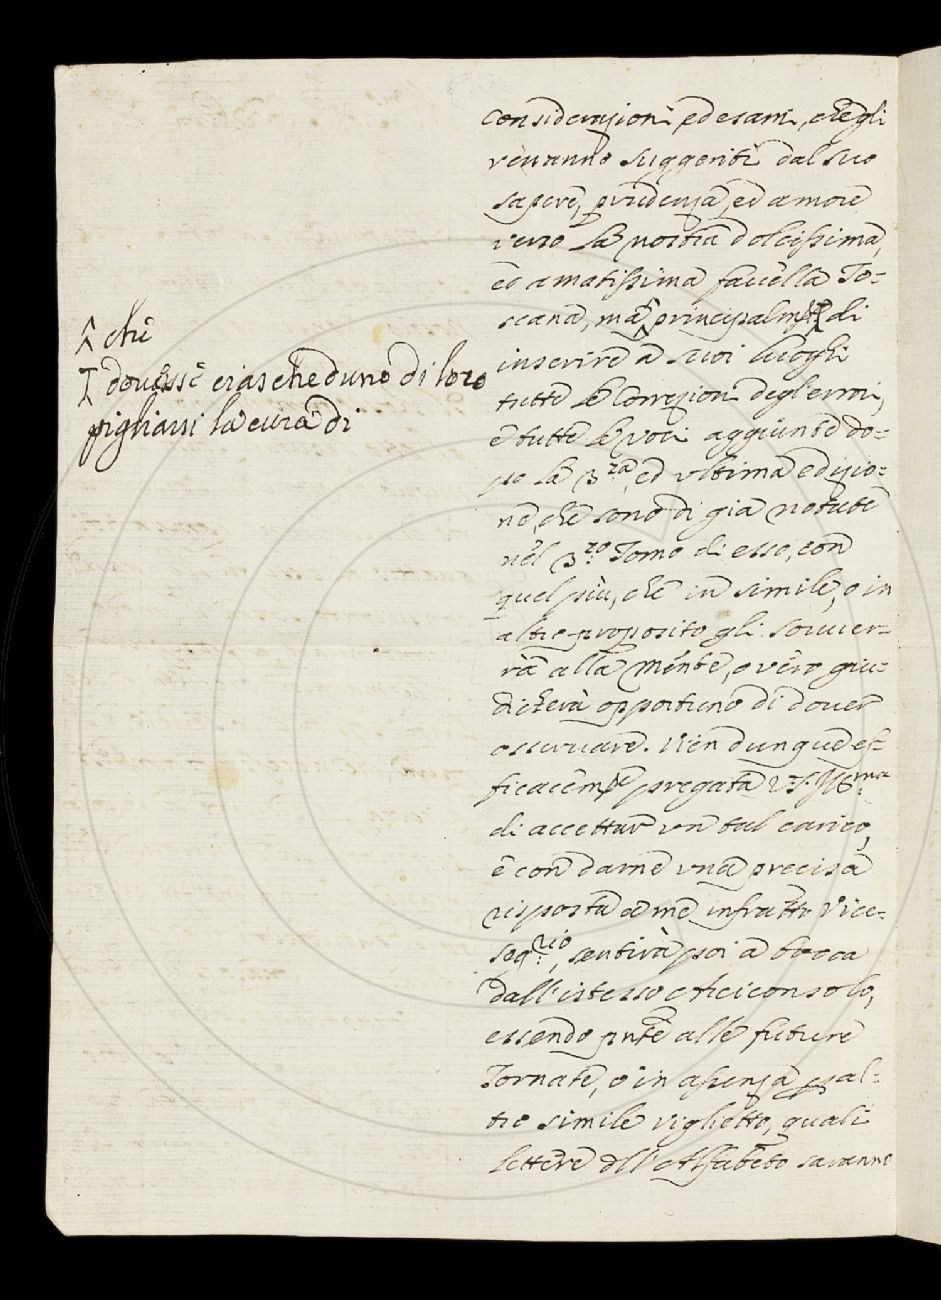 ^ che
I douesse ciascheduno di loro
pigliarsi la cura di
considerazioni, ed esami, che gli
verranno suggeriti dal suo
sapere, prudenza, ed amore
verso la nostra dolcissima,
ed amatissima favella To=
scana, ma ^ principalmte I di
inserire a suoi luoghi
tutte le Correzioni degl'errori,
e tutte le voci aggiunte do=
po la 3.za, ed ultima edizio=
ne, che sono di già notate
nel 3.zo Tomo di esso, con
quel più, che in simile, o in
altro proposito gli souver=
rà alla mente, o vero giu=
dicherà opportuno di dover
osservare. Vien dunque ef=
ficacemte pregata V.S. Ill.ma
di accettar un tal carico,
e con darne una precisa
risposta a me infratto Vice=
seg.rio, sentirà poi a bocca
dall'istesso Arciconsolo,
essendo pnte alle future
Tornate, o in assenza p al=
tro simile viglietto, quali
lettere dell'Alfabeto saranno